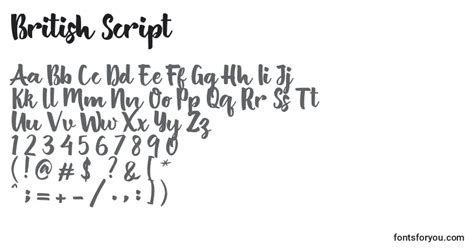 British Script
Aa Bb Cc Dd Ee Ff Gg Hh Ii Jj
Kk Ll Mm Nn Oo Pp Qq Rr Ss Tt
Uu Vv Ww Xx Yy Zz
1 2 3 4 5 6 7 8 9 0
( ! @ # $ ? & [ *
^ ; = + - / . , : ] )
fontsforyou.com